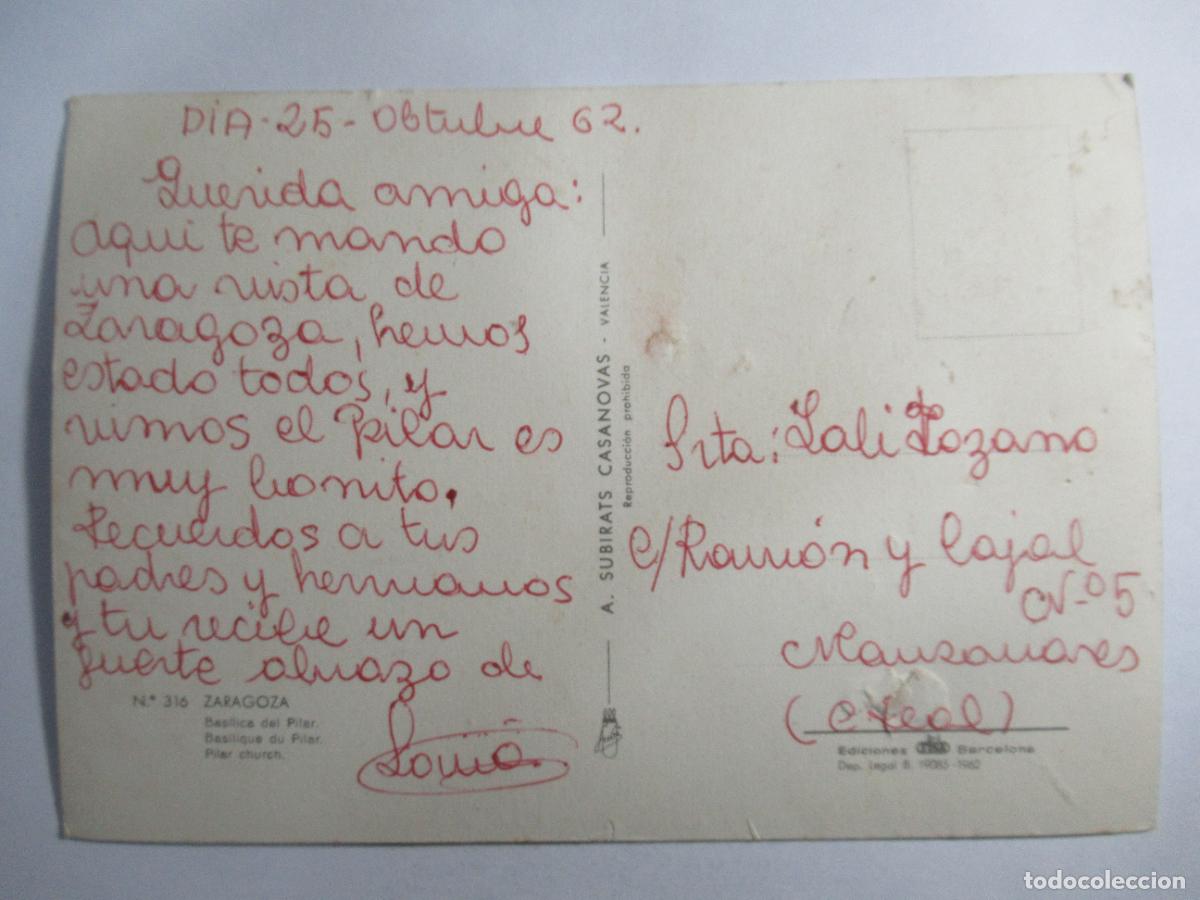 DIA-25-Obtubre 62.
Querida amiga:
aqui te mando
una vista de
Zaragoza, hemos
estado todos, y
vimos el Pilar es
muy bonito.
Recuerdos a tus
padres y hermanos
y tu recibe un
fuerte abrazo de
N.º 316 ZARAGOZA
Basílica del Pilar.
Basilique du Pilar.
Pilar church.
A. SUBIRATS CASANOVAS - VALENCIA
Reproducción prohibida
Srta: Lali Lozano
c/ Ramón y Cajal
Nº 5
Manzanares
(C. Real)
Ediciones Barcelona
Dep. Legal B. 19085-1962
todocoleccion